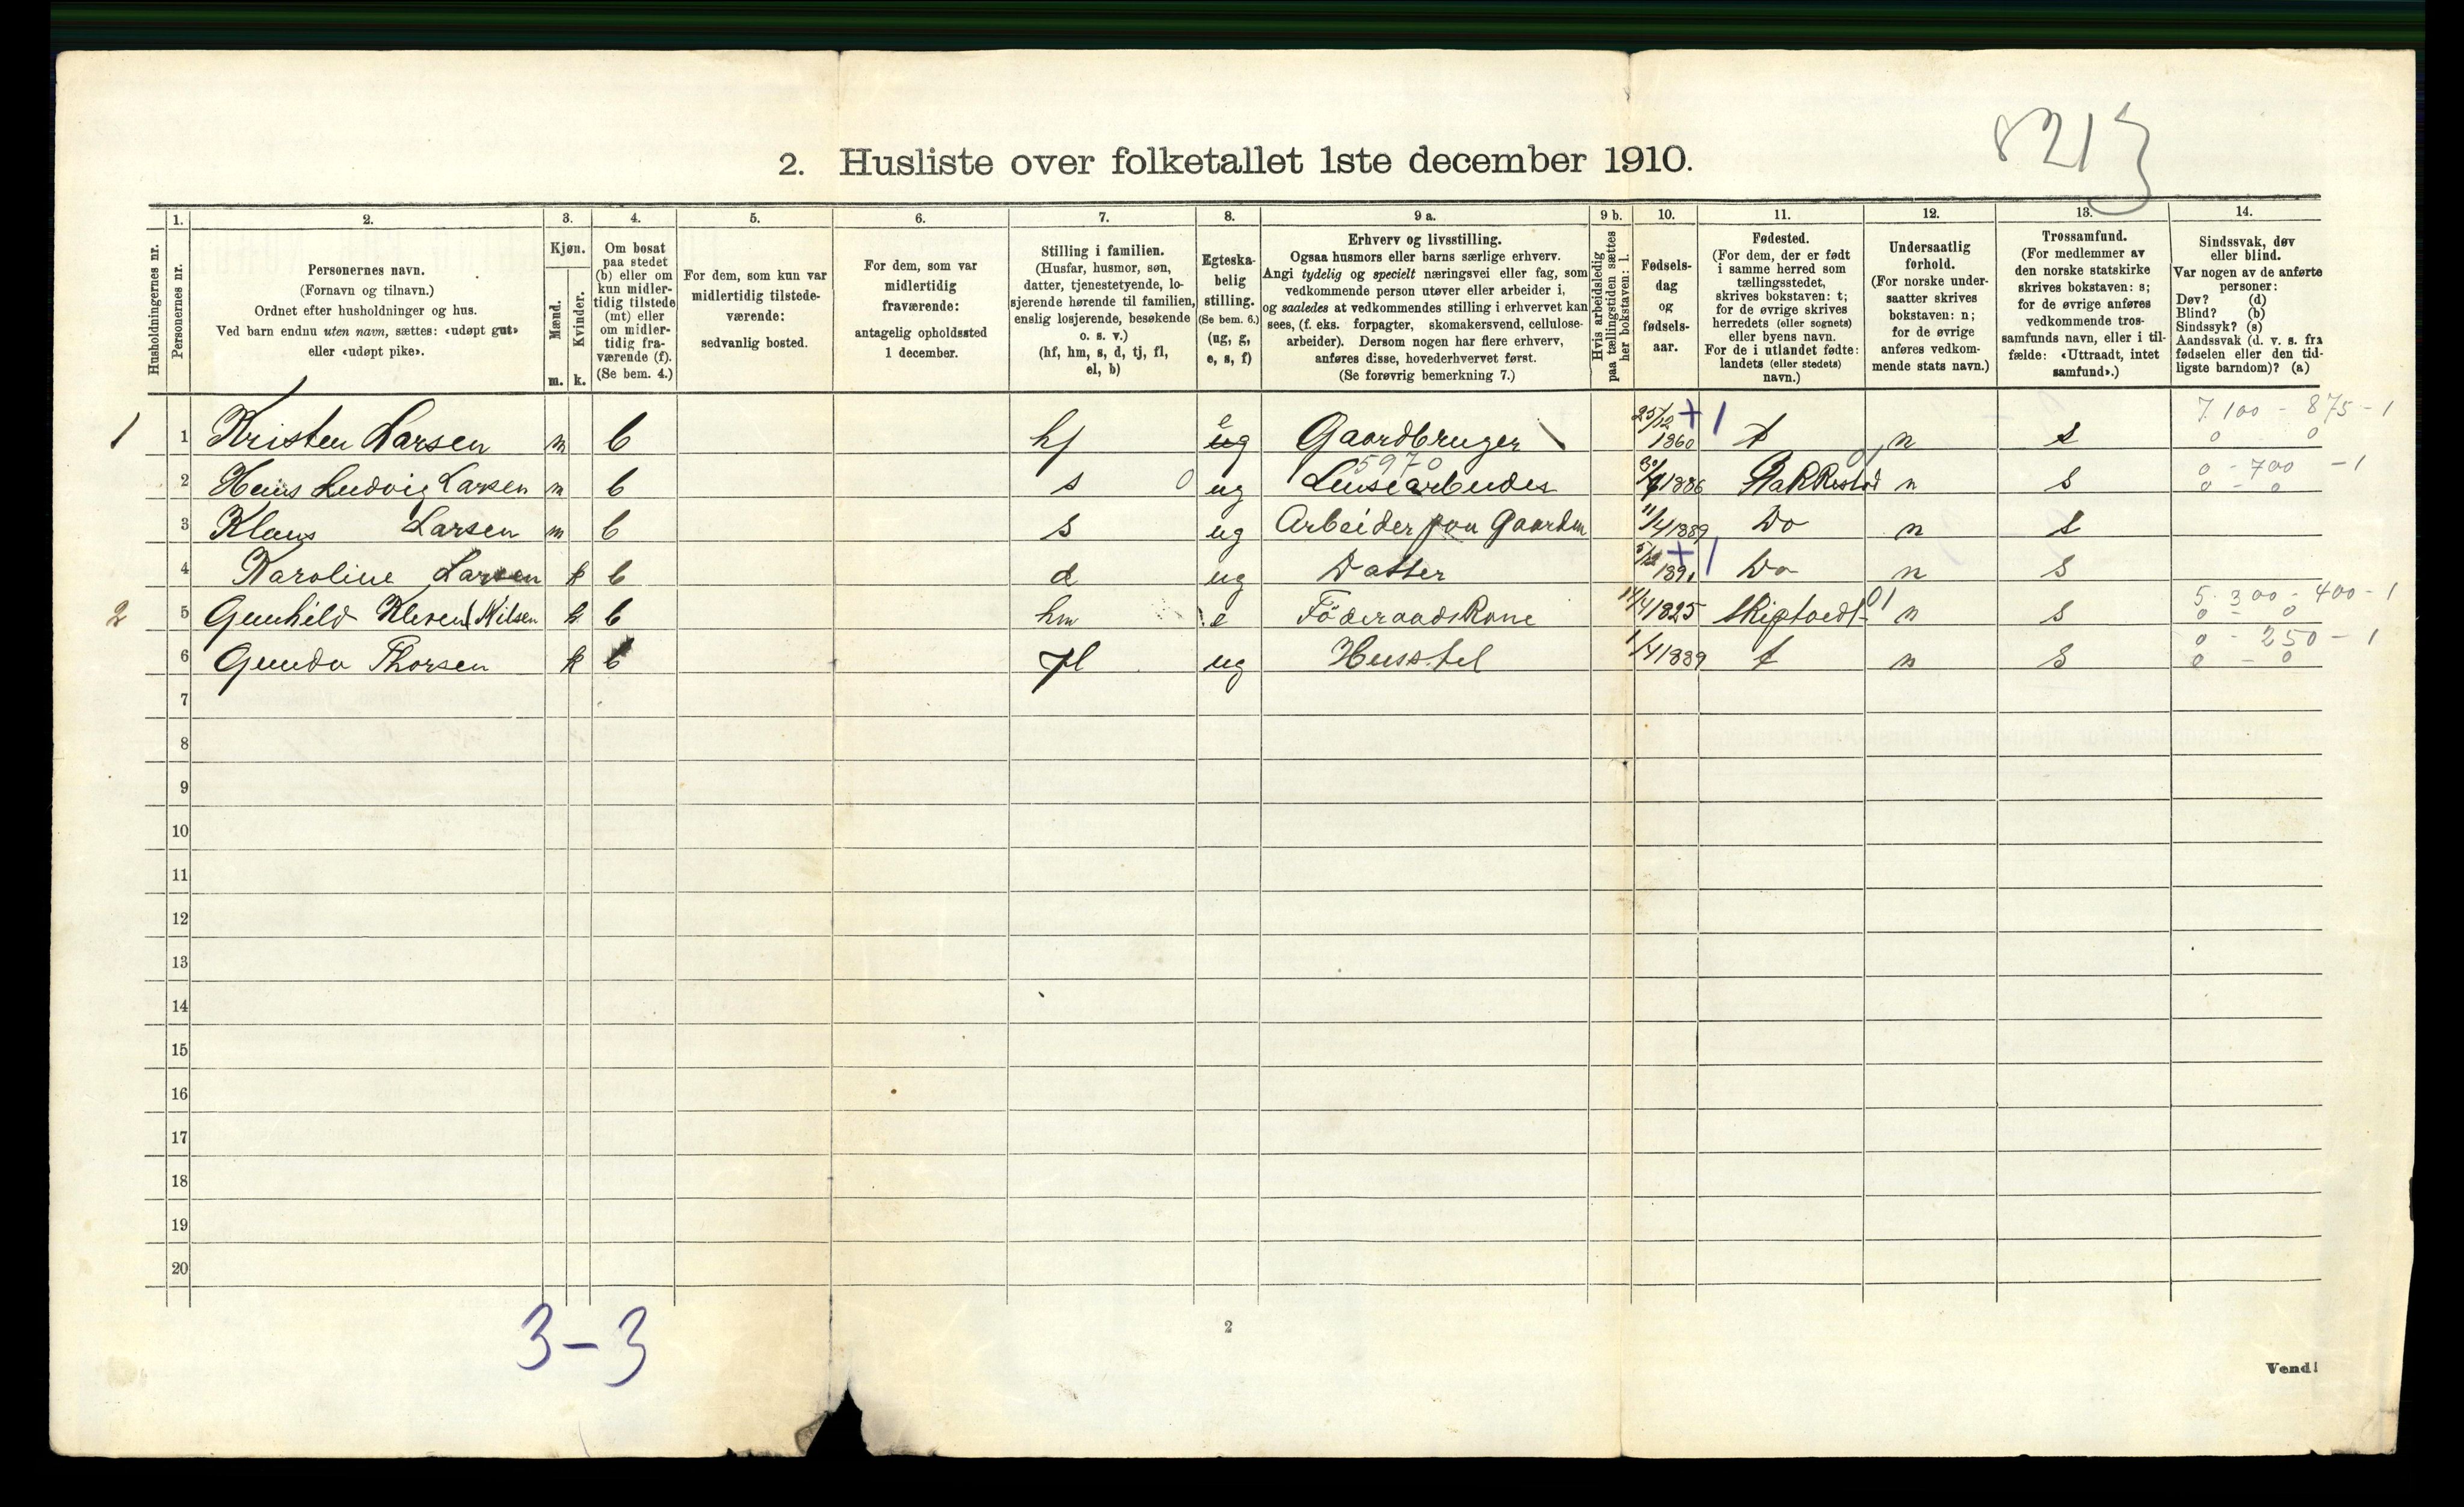 8213
2. Husliste over folketallet 1ste december 1910.
Husholdningernes nr.
1. Personernes nr.
2. Personernes navn.
(Fornavn og tilnavn.)
Ordnet efter husholdninger og hus.
Ved barn endnu uten navn, sættes: «udøpt gut»
eller «udøpt pike».
3. Kjøn.
Mænd. Kvinder.
m. k.
4. Om bosat
paa stedet
(b) eller om
kun midler-
tidig tilstede
(mt) eller
om midler-
tidig fra-
værende (f).
(Se bem. 4.)
5. For dem, som kun var
midlertidig tilstede-
værende:
sedvanlig bosted.
6. For dem, som var
midlertidig
fraværende:
antagelig opholdssted
1 december.
7. Stilling i familien.
(Husfar, husmor, søn,
datter, tjenestetyende, lo-
sjerende hørende til familien,
enslig losjerende, besøkende
o. s. v.)
(hf, hm, s, d, tj, fl,
el, b)
8. Egteska-
belig
stilling.
(Se bem. 6.)
(ug, g,
e, s, f)
9 a. Erhverv og livsstilling.
Ogsaa husmors eller barns særlige erhverv.
Angi tydelig og specielt næringsvei eller fag, som
vedkommende person utøver eller arbeider i,
og saaledes at vedkommendes stilling i erhvervet kan
sees, (f. eks. forpagter, skomakersvend, cellulose-
arbeider). Dersom nogen har flere erhverv,
anføres disse, hovederhvervet først.
(Se forøvrig bemerkning 7.)
9 b. Hvis arbeidsledig
paa tællingstiden sættes
her bokstaven: l.
10. Fødsels-
dag
og
fødsels-
aar.
11. Fødested.
(For dem, der er født
i samme herred som
tællingsstedet,
skrives bokstaven: t;
for de øvrige skrives
herredets (eller sognets)
eller byens navn.
For de i utlandet fødte:
landets (eller stedets)
navn.)
12. Undersaatlig
forhold.
(For norske under-
saatter skrives
bokstaven: n;
for de øvrige
anføres vedkom-
mende stats navn.)
13. Trossamfund.
(For medlemmer av
den norske statskirke
skrives bokstaven: s;
for de øvrige anføres
vedkommende tros-
samfunds navn, eller i til-
fælde: «Uttraadt, intet
samfund».)
14. Sindssvak, døv
eller blind.
Var nogen av de anførte
personer:
Døv? (d)
Blind? (b)
Sindssyk? (s)
Aandssvak (d. v. s. fra
fødselen eller den tid-
ligste barndom)? (a)
7.100 - 875 - 1
1 1 Kristen Larsen m b hf e ug Gaardbruger 25/12 1860 + 1 t n s 0 0
5970 0 - 700 - 1
2 Hans Ludvig Larsen m b s 0 ug Lensearbeider 1886 n s 0 - 0
3 Klaus Larsen m b s ug Arbeider paa Gaarden 11/4 1889 Do n s
4 Karoline Larsen k b d ug Datter + 1 Do n s
5.300 - 400 - 1
2 5 Gunhild Kleven (Nilsen k b hm e Föderaadskone 14/4 1825 01 n s 0 - 0
0 - 250 - 1
6 Gunda Thorsen k b fl ug Husstel 1/4 1889 t n s 0 - 0
7
8
9
10
11
12
13
14
15
16
17
18
19
20
3-3
2
Vend!